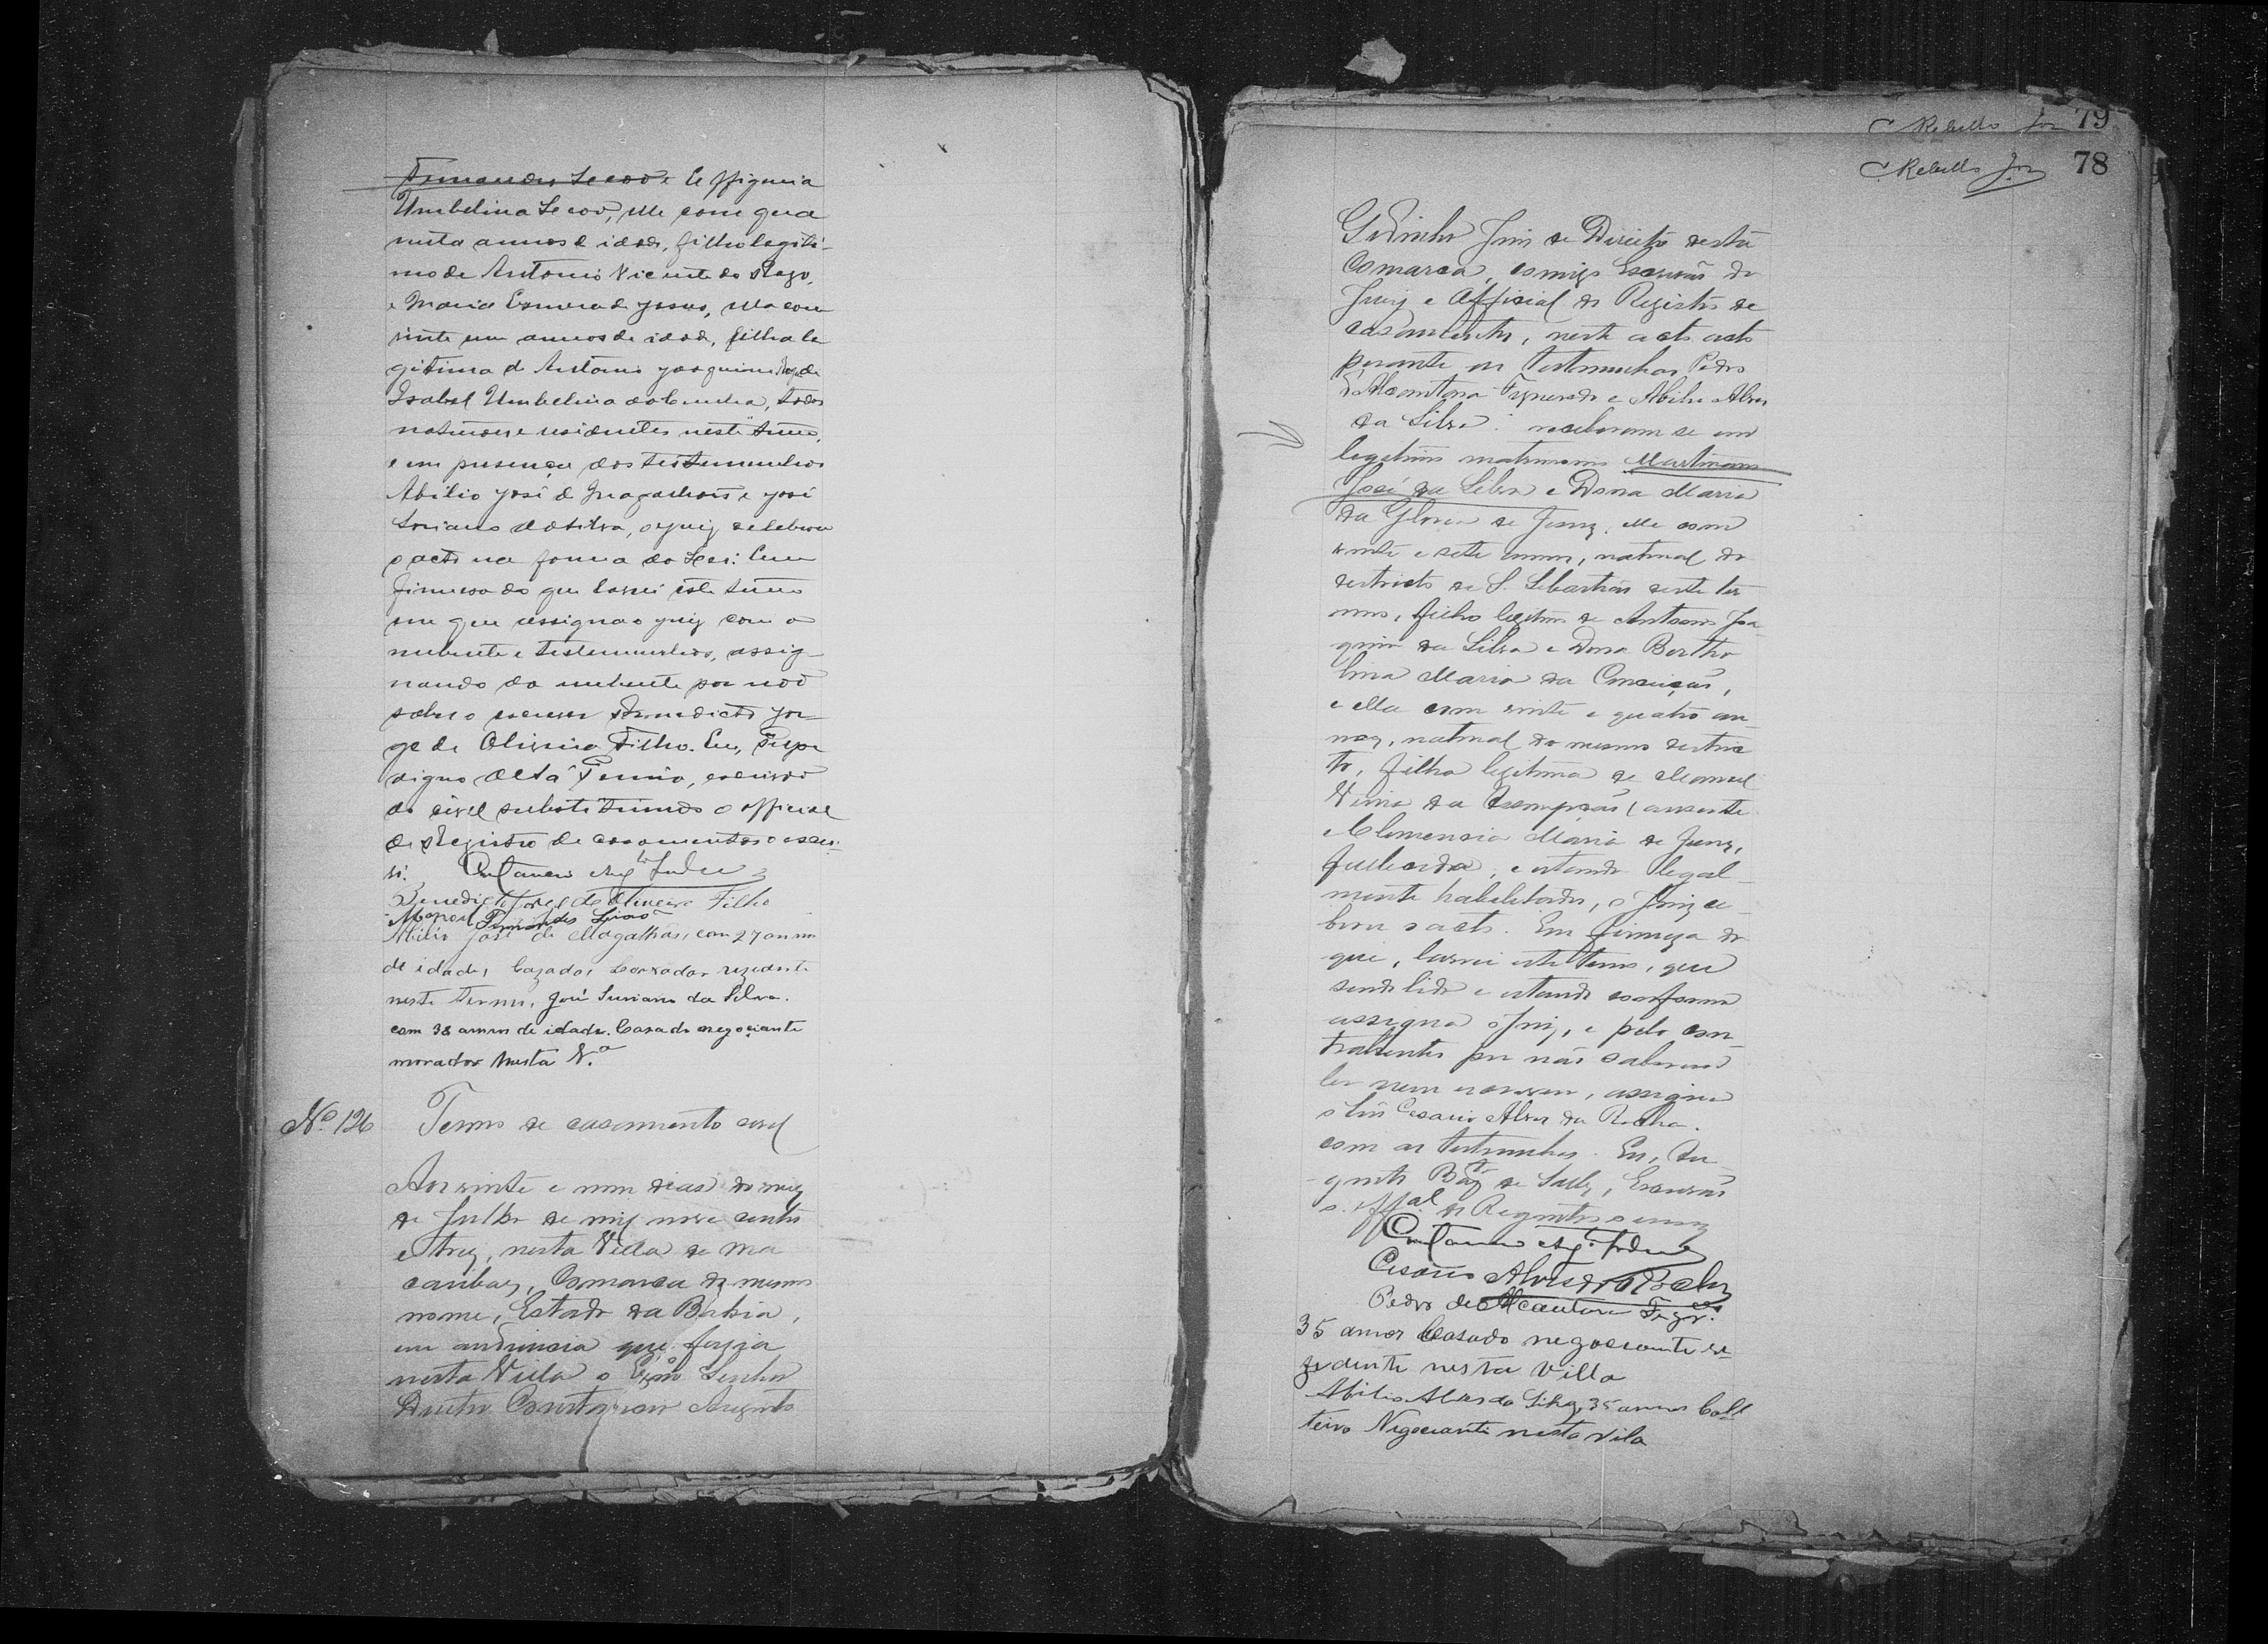 Fernandes Leão e Effigenia
Umbelina Leão, elle com qua
renta annos de idade, filho legiti-
mo de Antonio Vicente do Rego,
e Maria de Jesus, ella com
vinte um annos de idade, filha le
gitima de Antonio Joaquim
Isabel Umbelina da Cunha, todos
naturaes e residentes neste termo,
e em presença das testemunhas
Abilio José de Magalhães e José
Suriano da Silva, o juiz celebrou
o acto na forma da Lei. Em
firmesa do que lavrei este termo
em que assigna o juiz com o
nubente e testemunhas, assig-
nando da nubente por não
saber escrever Benedicto Jor-
ge de Oliveira Filho. Eu,
digno escrivão
do civel substituindo o official
do Registro de casamentos o escre-
vi.
Benedicto Jorge de Oliveira Filho
Manoel Fernandes Leão
Abilio José de Magalhães, com 27 annos
de idade, Cazado, Lavrador rezidente
neste termo, José Suriano da Silva.
com 38 annos de idade. Casado negociante
morador nesta V.ª
Nº 126 Termo de casamento civil
Aos vinte e nove dias do mez
de Julho de mil nove centos
e trez, nesta Villa de Ma
caúbas, Comarca do mesmo
nome, Estado da Bahia,
em audiencia que fazia
nesta Villa o Exmº Senhor
Doutor Augusto
79
C Rebello Jor
78
C. Rebello Jor
Juiz de Direito desta
Comarca, comigo Escrivão do
Juiz e Official do Registro de
casamentos, neste acto acto
perante as testemunhas Pedro
d'Alcantara Figueredo e Abilio Alves
da Silva: receberam se em
legitimo matrimonio Martiniano
José da Silva e Dona Maria
da Gloria de Jesus, elle com
vinte e sete annos, natural do
destricto de S. Sebastião deste ter
mo, filho legitimo de Antonio Joa-
quim da Silva e Dona Bertho
lina Maria da Conceição,
e ella com vinte e quatro an-
nos, natural do mesmo destric
to, filha legitima de Manoel
da (ausente
e Clemencia Maria de Jesus,
fallecida, e estando legal-
mente habilitados, o Juiz ce-
brou o acto. Em firmeza do
que, lavrei este termo, que
sendo lido e estando conforme
assigna o Juiz, e pelo con-
trahentes por não saberem
ler nem escrever, assigna
Cesario Alves da Rocha.
com as testemunhas. Eu, Au
gusto de Salles, Escrivão
e offal do Registro o escrevy
Cesario Alves da Rocha
Pedro de Alcantara Figrdº
35 annos Casado negociante re-
zidente nesta Villa
Abilio Alves da Silva, 35 annos Coll
teiro Negociante nesta villa